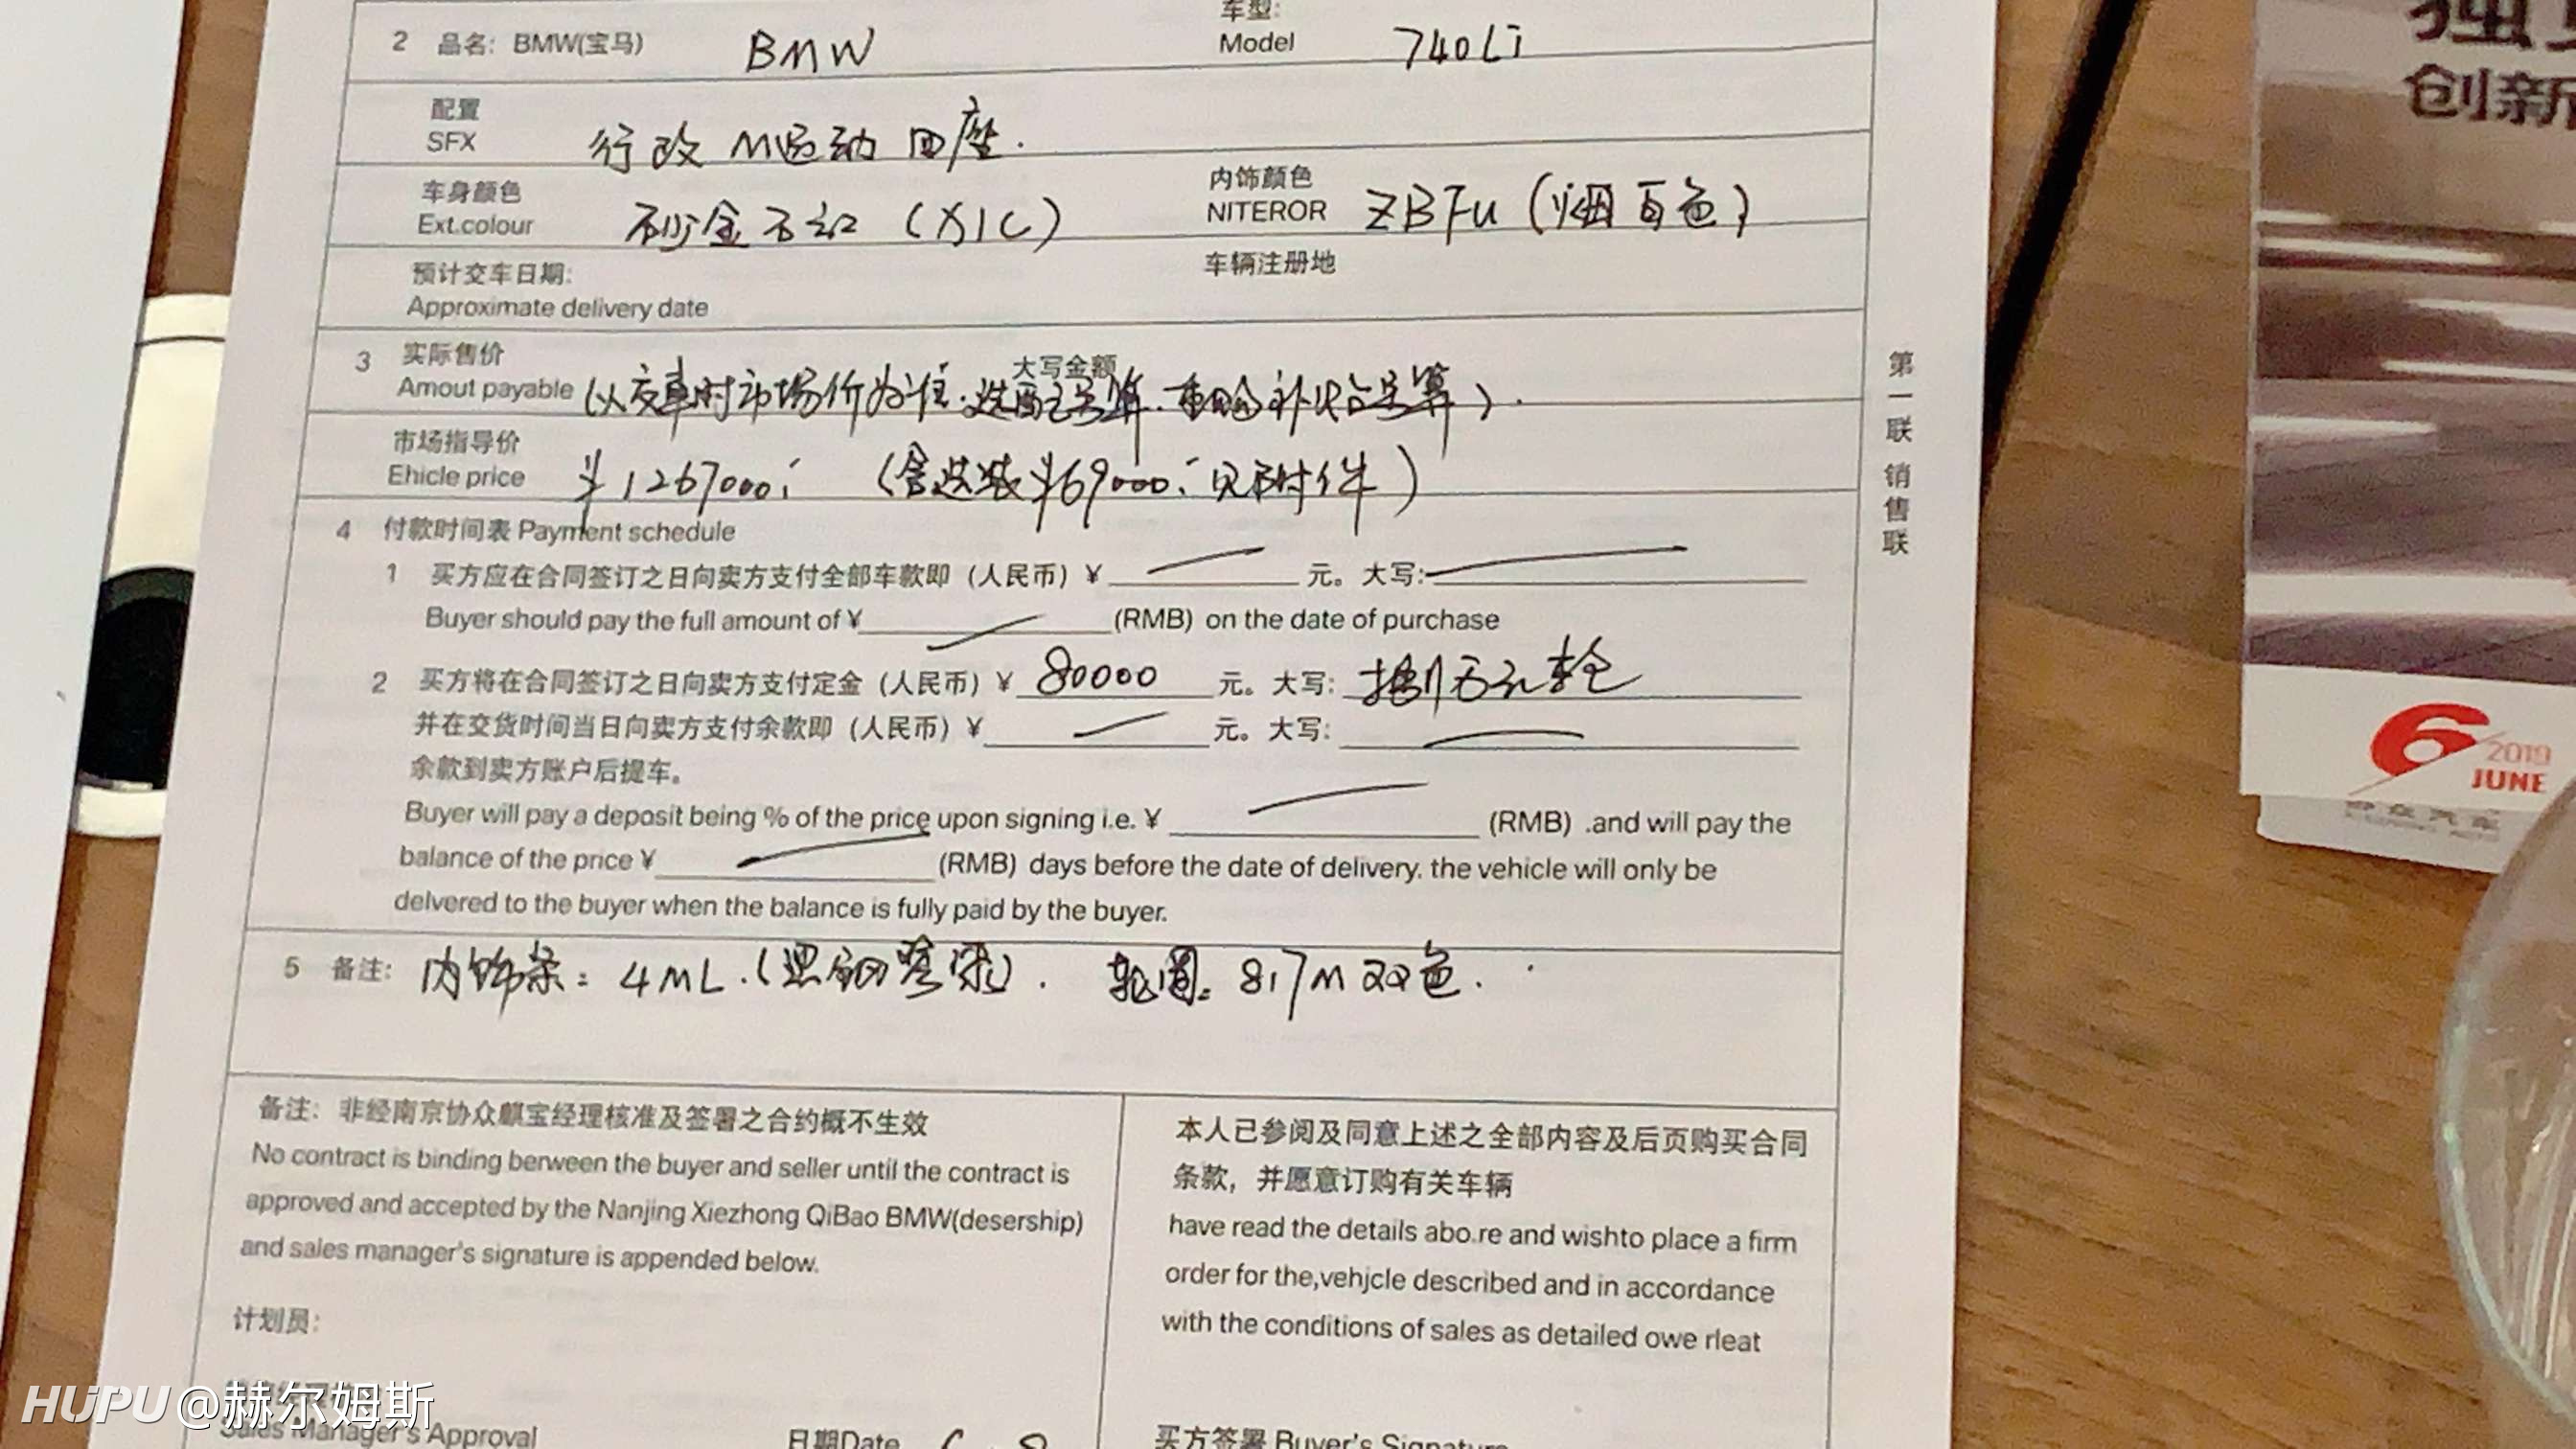 车型:
2 品名: BMW(宝马) BMW Model 740Li
配置
SFX 行政 M运动 四座.
车身颜色 内饰颜色
Ext.colour 砂金石红 (X1C) NITEROR ZBFU (烟白色)
预计交车日期: 车辆注册地
Approximate delivery date
3 实际售价 大写金额
Amout payable (以交车时市场价为准.选配另算. 补贴另算).
市场指导价
Ehicle price ¥1267000 (含选装¥69000 见附件)
4 付款时间表 Payment schedule
1 买方应在合同签订之日向卖方支付全部车款即 (人民币) ¥ 元。大写:
Buyer should pay the full amount of ¥ (RMB) on the date of purchase
2 买方将在合同签订之日向卖方支付定金 (人民币) ¥ 80000 元。大写: 捌万元整
并在交货时间当日向卖方支付余款即 (人民币) ¥ 元。大写:
余款到卖方账户后提车。
Buyer will pay a deposit being % of the price upon signing i.e. ¥ (RMB) .and will pay the
balance of the price ¥ (RMB) days before the date of delivery. the vehicle will only be
delvered to the buyer when the balance is fully paid by the buyer.
5 备注: 内饰条: 4ML.(黑钢琴漆). 轮圈: 817M 双色.
备注: 非经南京协众麒宝经理核准及签署之合约概不生效
No contract is binding berween the buyer and seller until the contract is
approved and accepted by the Nanjing Xiezhong QiBao BMW(desership)
and sales manager's signature is appended below.
计划员:
本人已参阅及同意上述之全部内容及后页购买合同
条款, 并愿意订购有关车辆
have read the details abo.re and wishto place a firm
order for the,vehjcle described and in accordance
with the conditions of sales as detailed owe rleat
Sales Manager's Approval 日期Date 买方签署 Buyer's Signature
第一联 销售联
创新
6 2019
JUNE
HUPU @赫尔姆斯